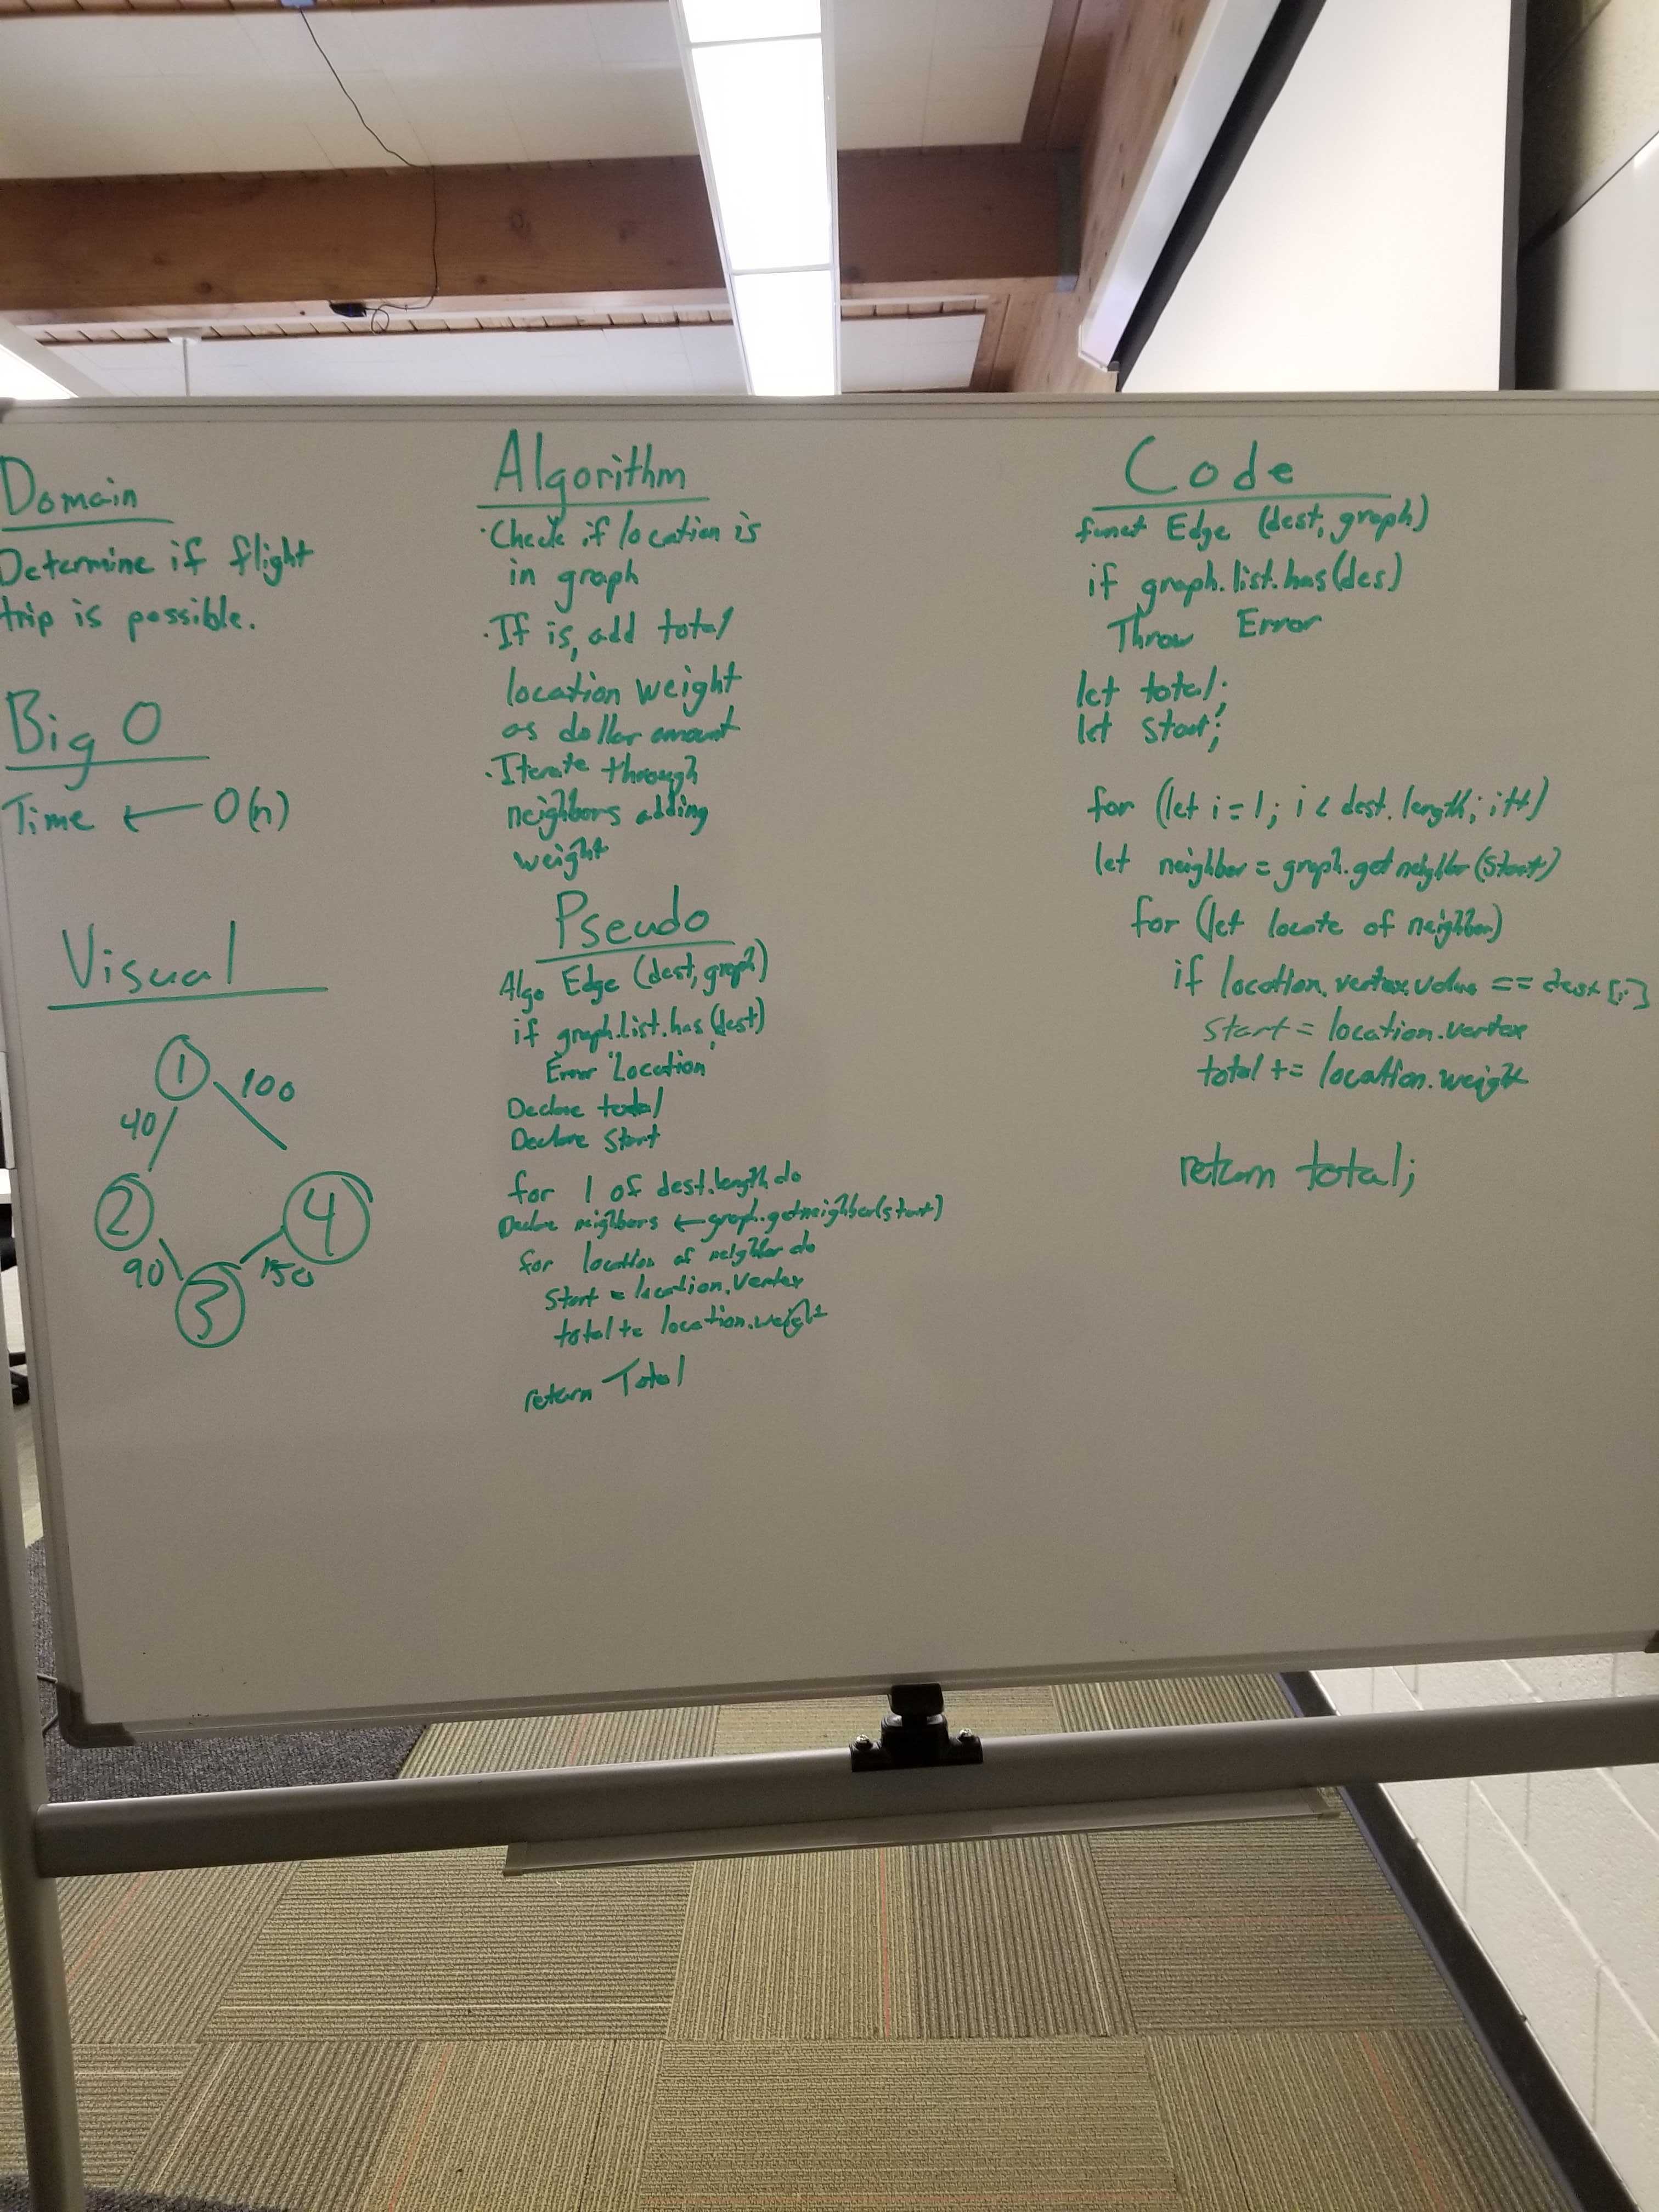 Domain
Determine if flight
trip is possible.
Big O
Time ← O(n)
Visual
1
100
40
2
4
90
150
3
Algorithm
·Check if location is
in graph
·If is, add total
location weight
as dollar amount
·Iterate through
neighbors adding
weight
Pseudo
Algo Edge (dest, graph)
if graph.list.has(dest)
Error 'Location'
Declare total
Declare Start
for 1 of dest.length do
Declare neighbors ← graph.getneighbor(start)
for location of neighbor do
Start = location.Vertex
total += location.weight
return Total
Code
funct Edge (dest, graph)
if graph.list.has(des)
Throw Error
let total;
let start;
for (let i = 1; i < dest.length; i++)
let neighbor = graph.getneighbor(start)
for (let locate of neighbor)
if location.vertex.value == dest[i]
start = location.vertex
total += location.weight
return total;